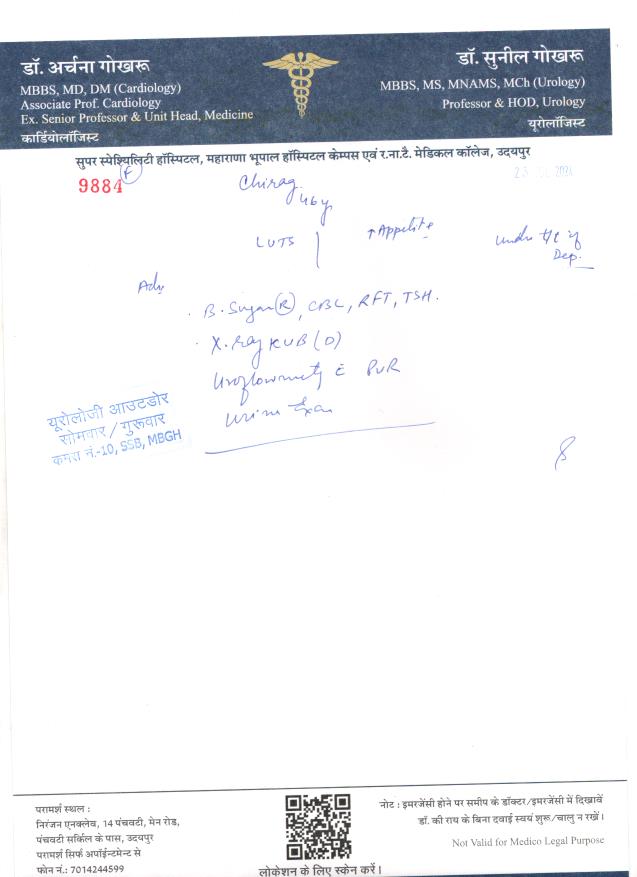 डॉ. अर्चना गोखरू
MBBS, MD, DM (Cardiology)
Associate Prof. Cardiology
Ex. Senior Professor & Unit Head, Medicine
कार्डियोलॉजिस्ट
डॉ. सुनील गोखरू
MBBS, MS, MNAMS, MCh (Urology)
Professor & HOD, Urology
यूरोलॉजिस्ट
सुपर स्पेश्यिलिटी हॉस्पिटल, महाराणा भूपाल हॉस्पिटल केम्पस एवं र.ना.टै. मेडिकल कॉलेज, उदयपुर
9884
Chirag
46y
LUTS
↑Appetite
under t/t of
Dep.
Adv
B. Sugar (R), CBC, RFT, TSH.
X.ray KUB (D)
Uroflowmetry c̄ PVR
Urine Exam
यूरोलोजी आउटडोर
सोमवार / गुरूवार
कमरा नं.-10, SSB, MBGH
परामर्श स्थल :
निरंजन एनक्लेव, 14 पंचवटी, मेन रोड,
पंचवटी सर्किल के पास, उदयपुर
परामर्श सिर्फ अपॉईन्टमेन्ट से
फोन नं.: 7014244599
लोकेशन के लिए स्केन करें।
नोट : इमरजेंसी होने पर समीप के डॉक्टर/इमरजेंसी में दिखावें
डॉ. की राय के बिना दवाई स्वयं शुरू/चालु न रखें।
Not Valid for Medico Legal Purpose